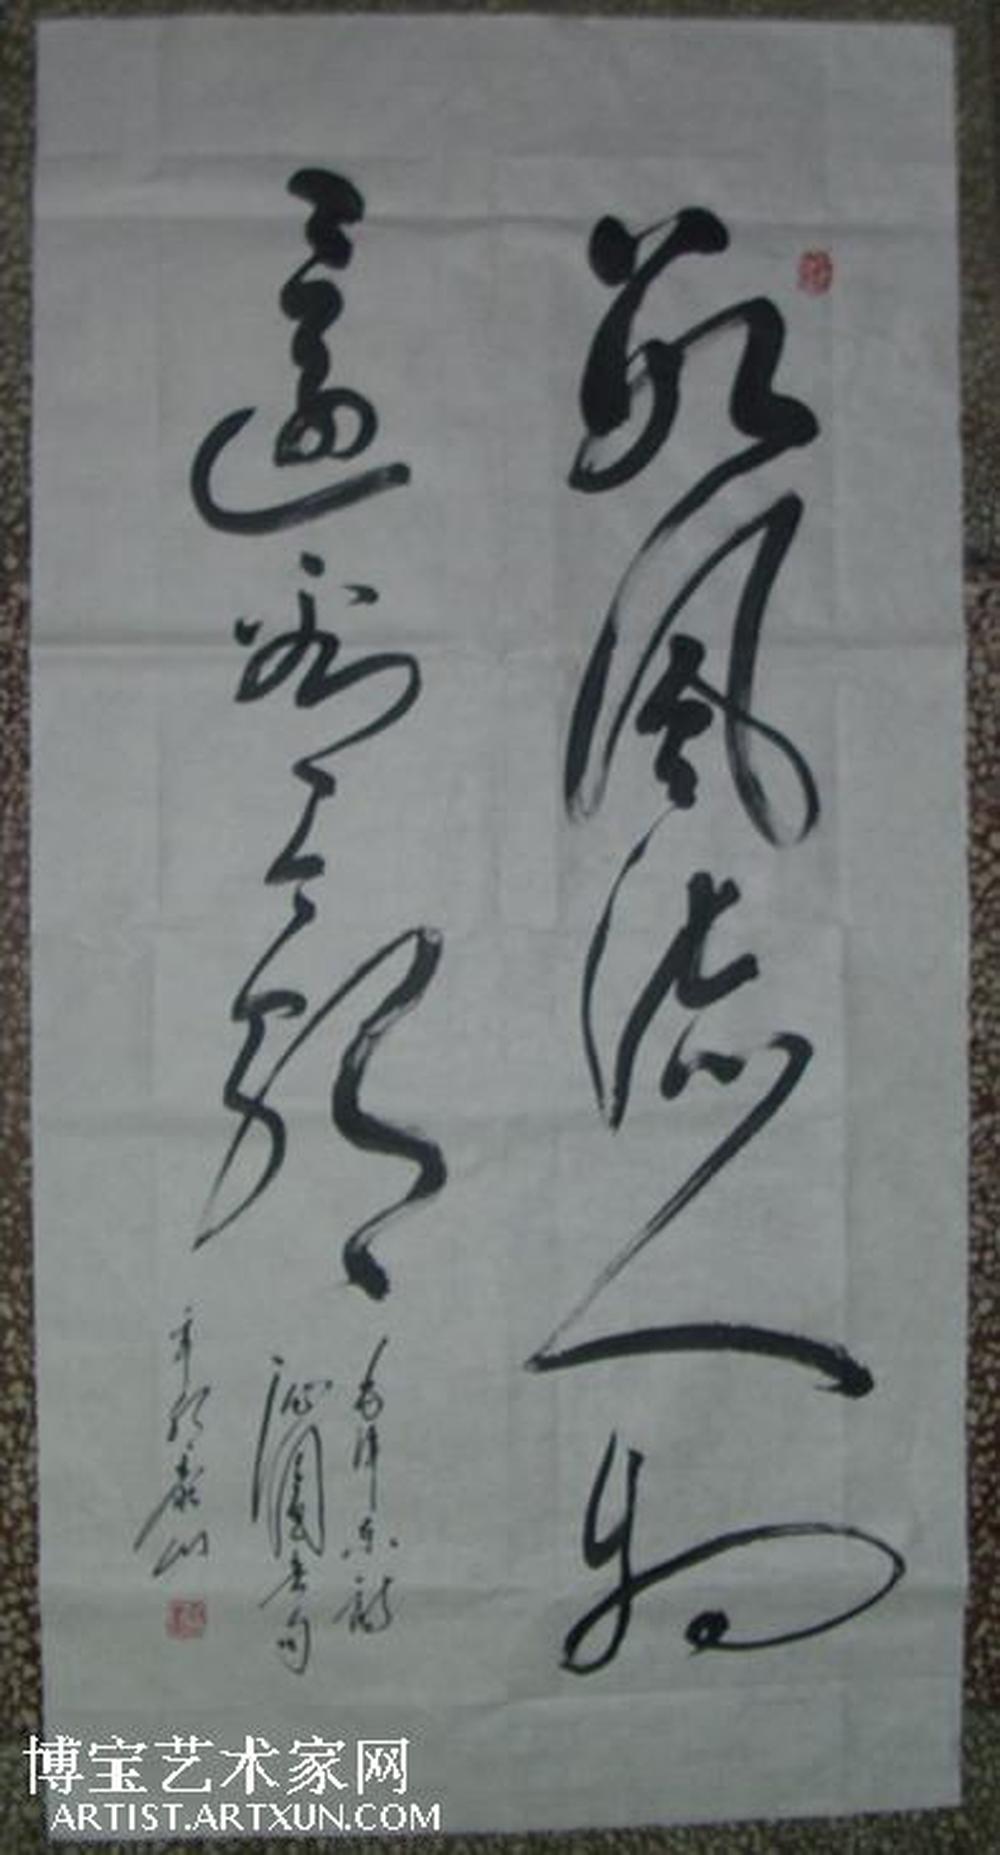 數風流人物
還看今朝
毛泽东
沁園春句
博宝艺术家网
ARTIST.ARTXUN.COM